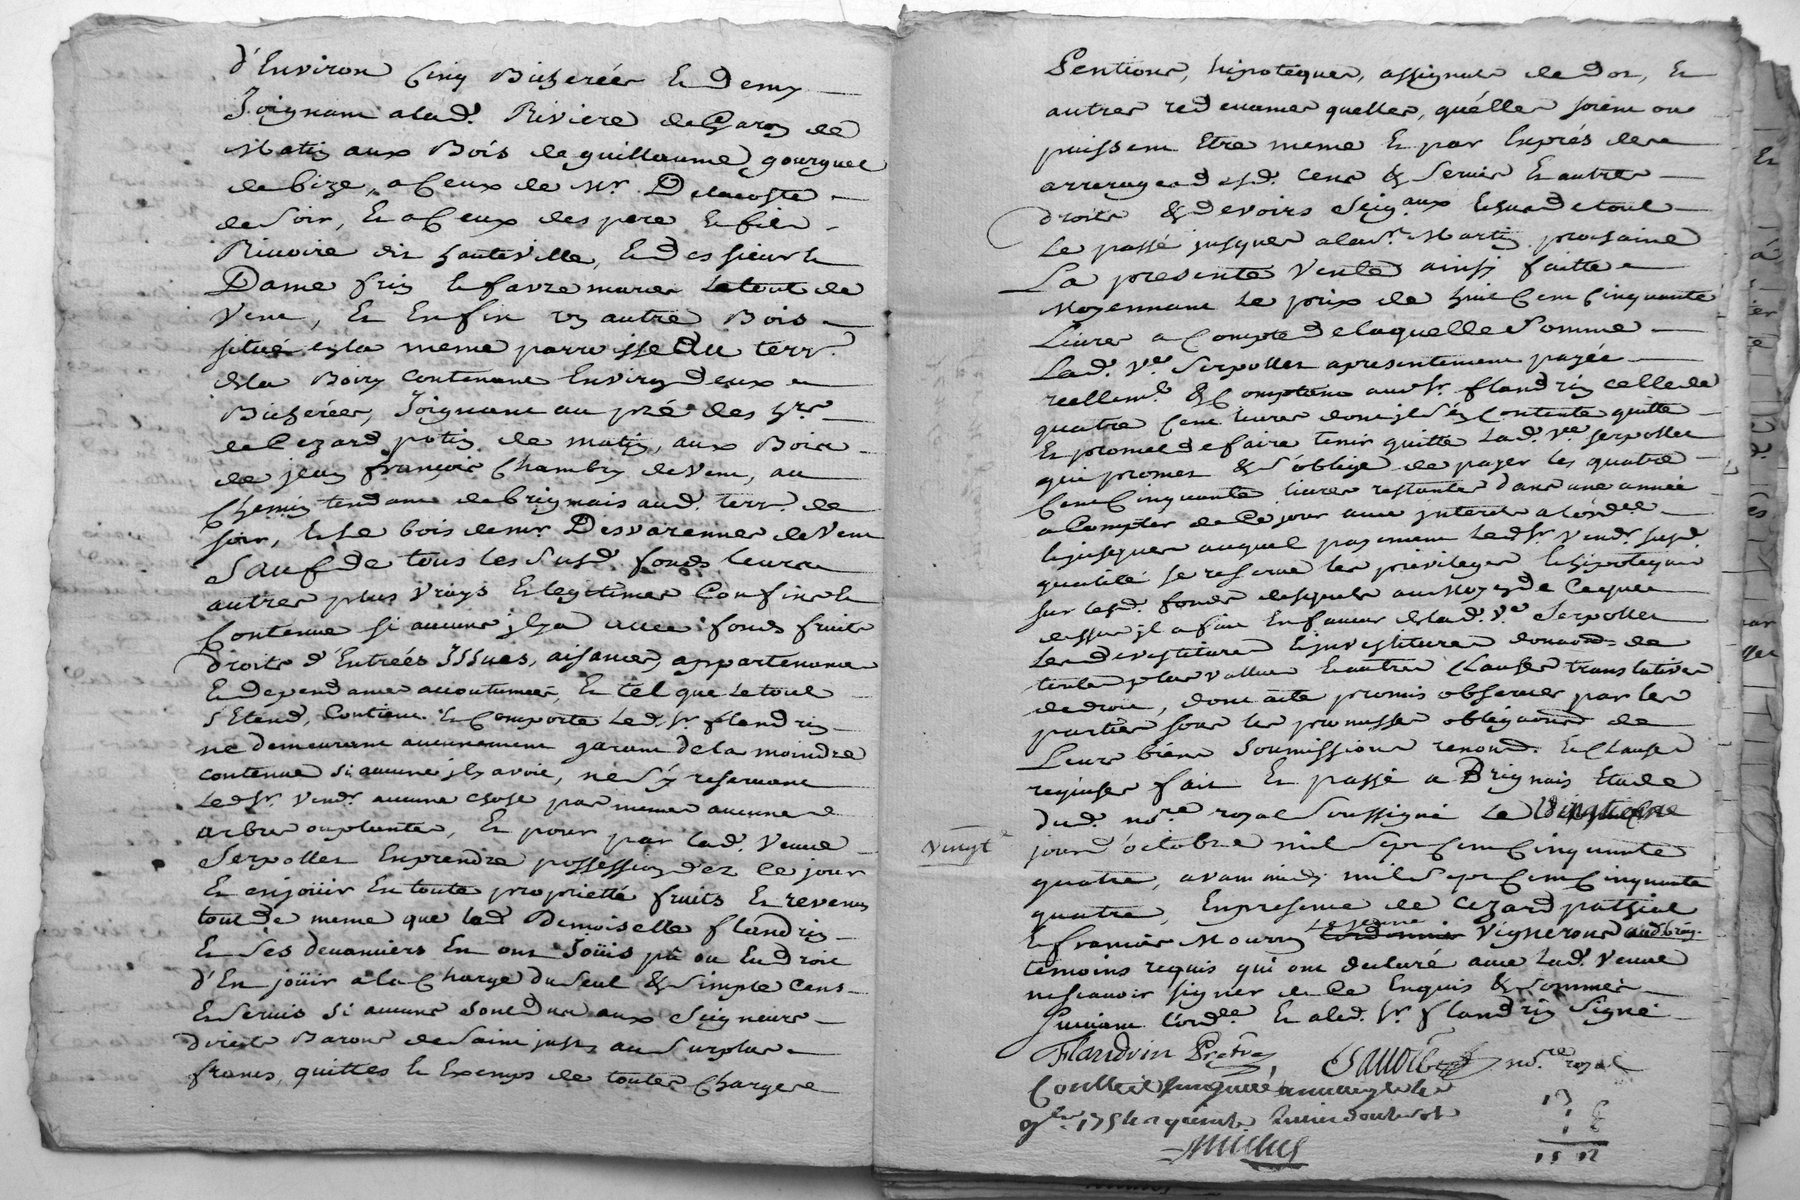 d'Environ Cinq Bicherées Et demy
Joignant a lad. Riviere de Garon de
Matin aux Bois de guillaume gourguet
de bize, a Ceux de Mr. Delacoste
de Soir, Et a Ceux des pere Et fils
Rivoire dit hauteville, Et des sieur Et
Dame friz Et favre mariés Le tout de
Vent, Et Enfin un autre Bois
situé en la meme parroisse Du terr.
de la Boiry Contenant Environ deux
Bicherées, Joignant au pré des hrs
de Cezard potin de matin, aux Bois
de jean françois Chambry de Vent, au
Chemin tendant de brignais aud. terr. de
soir, Et le bois de mr. Desvarennes de Vent
Sauf de tous les Susd. fonds leurs
autres plus Vrays Et legitimes Confins Et
Contenue si aucuns il y a avec fonds fruits
droits d'Entrées Issues, aisances, appartenances
Et dependances accoutumées, Et tel que Le tout
s'Etend, Contient Et Comporte Led. Sr flandrin
ne demeurant aucunement garant de la moindre
contenue si aucune il y avoit, ne s'y reservant
Led. Sr. Vendr. aucune chose pas meme aucuns
arbres ou plantes, Et pour par lad. Veuve
Serpollet En prendre possession dez Ce jour
Et en joüir En toute proprietté fruits Et revenus
tout de meme que lad. Demoiselle flandrin
Et Ses devanciers En ont Joüis pû ou Eu droit
d'En joüir a la Charge du Seul & Simple Cens
Et Servis si aucuns Sont dus aux Seigneurs
directs Barons de Saint just, au Surplus
francs, quittes Et Exempts de toutes Charges
Pentions, hipoteques, assignats de dot, Et
autres redevances quelles, qu'elles soient ou
puissent Etre meme Et par Exprés des
arrerages desd. Cens & Servis Et autres
droits & devoirs Seigaux Et ce de tout
Le passé jusques a la St. Martin prochaine
La presente Vente ainsi faitte
Moyennant Le prix de huit Cent Cinquante
Livres a Compte de laquelle Somme
Lad. Ve. Serpollet a presentement payée
reellemt. & Comptant aud. Sr. flandrin celle de
quatre Cent livres dont il s'en Contente quitte
Et promet de faire tenir quitte Lad. Ve. Serpollet
qui promet & s'oblige de payer les quatre
Cent Cinquante livres restantes dans une année
a Compter de Ce jour avec interets a l'ordce
Et jusques auquel payement Led. Sr. Vendr. susd.
qualité se reserve les privileges Et hipoteques
sur lesd. fonds desquels au Moyen de Ce que
dessus il a fait En faveur de lad. Ve. Serpollet
Les devestitures Et investitures donaons. de
toute plus vallue Et autres Clauses translatives
de droit, dont acte promis observer par les
parties sous les promisses obligaons de
Leurs biens Soumissions renond. Et Clauses
requises fait Et passé a Brignais Etude
dud. nore. royal Soussigné Le
vingt
jour d'octobre mil Sept Cent Cinquante
quatre, avant midi mil Sept Cent Cinquante
quatre, En presence de Cezard pathiot
Et françois Mourry Le jeune Vignerons
temoins requis qui ont declaré avec Lad. Veuve
ne scavoir signer de Ce Enquis & Sommés
Suivant l'ordce Et a led. Sr. flandrin Signé
Flandrin Prêtre nore. royal
9bre. 1754
13
1